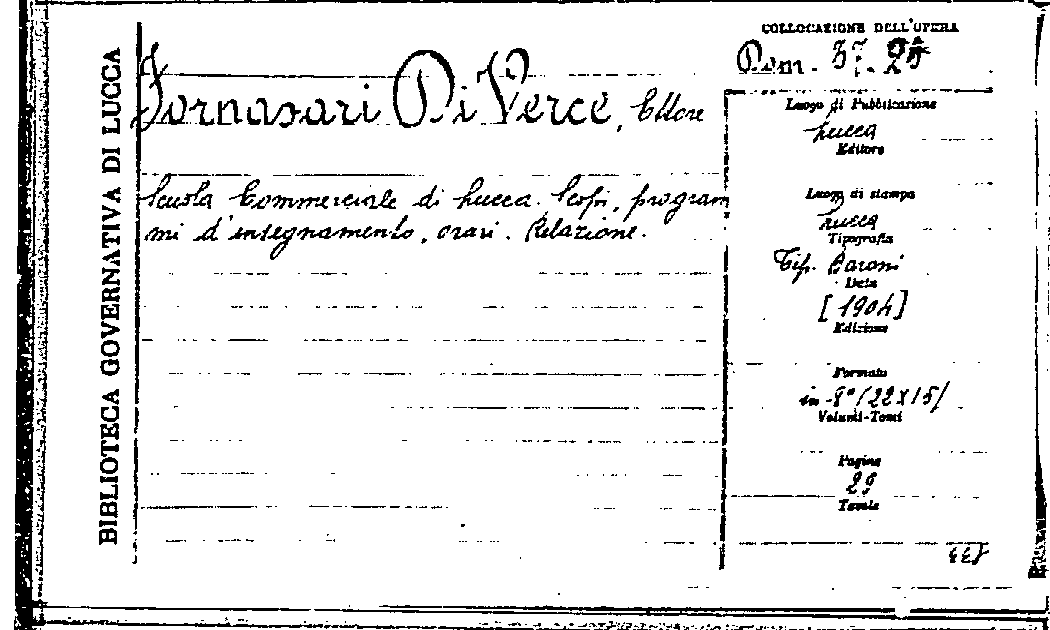 BIBLIOTECA GOVERNATIVA DI LUCCA
Fornasari Di Verce, Ettore
Scuola Commerciale di Lucca. Scopi, program
mi d'insegnamento, orari. Relazione.
COLLOCAZIONE DELL'OPERA
Dom. 37. 25
Luogo di Pubblicazione
Lucca
Editore
Luogo di stampa
Lucca
Tipografia
Tip. Baroni
Data
[1904]
Edizione
Formato
in-8° (22x15)
Volumi-Tomi
Pagine
29
Tavole